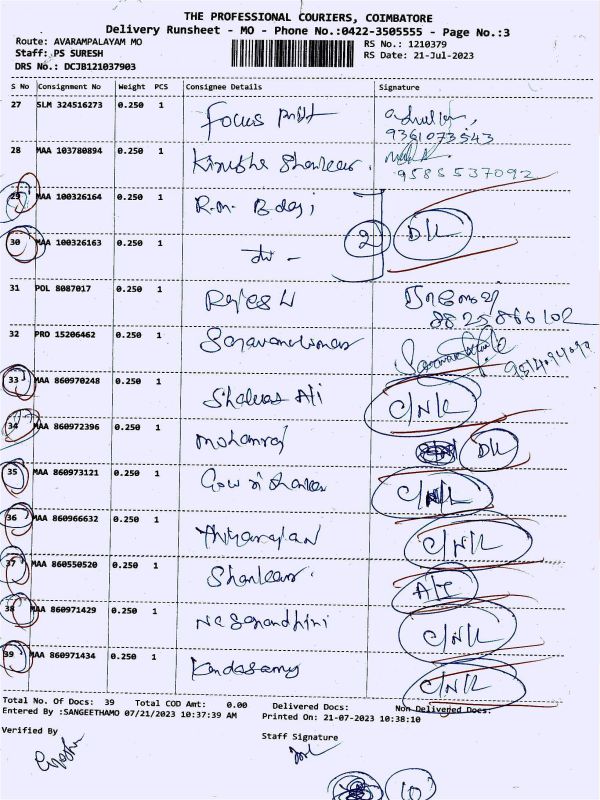 THE PROFESSIONAL COURIERS, COIMBATORE
Delivery Runsheet - MO - Phone No.:0422-3505555 - Page No.:3
Route: AVARAMPALAYAM MO RS No.: 1210379
Staff: PS SURESH RS Date: 21-Jul-2023
DRS No.: DCJB121037903
S No Consignment No Weight PCS Consignee Details Signature
27 SLM 324516273 0.250 1 Focus
9361073543
28 MAA 103780894 0.250 1
9585537092
29 MAA 100326164 0.250 1 R.m. Balaji
30 MAA 100326163 0.250 1 2 DL
31 POL 8087017 0.250 1 Rajesh
8825866102
32 PRO 15206462 0.250 1
33 MAA 860970248 0.250 1 C/N/L
34 MAA 860972396 0.250 1 Mohanraj DL
35 MAA 860973121 0.250 1 C/N/L
36 MAA 860966632 0.250 1 C/N/L
37 MAA 860550520 1 0.250 Shankar
38 MAA 860971429 0.250 1 C/N/L
39 MAA 860971434 0.250 1 Kandasamy C/N/L
Total No. Of Docs: 39 Total COD Amt: 0.00 Delivered Docs: Non Delivered Docs:
Entered By :SANGEETHAMO 07/21/2023 10:37:39 AM Printed On: 21-07-2023 10:38:10
Verified By Staff Signature
10